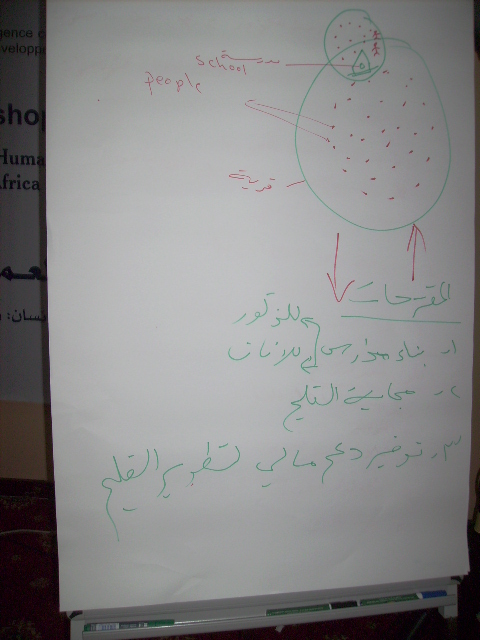 gence
developp
shop
Huma
Africa
school مدرسة
people
قرية
المقترحات
١- بناء مدارس للذكور
للاناث
٢- مجانية التعليم
٣- توفير دعم مالي لتطوير التعليم